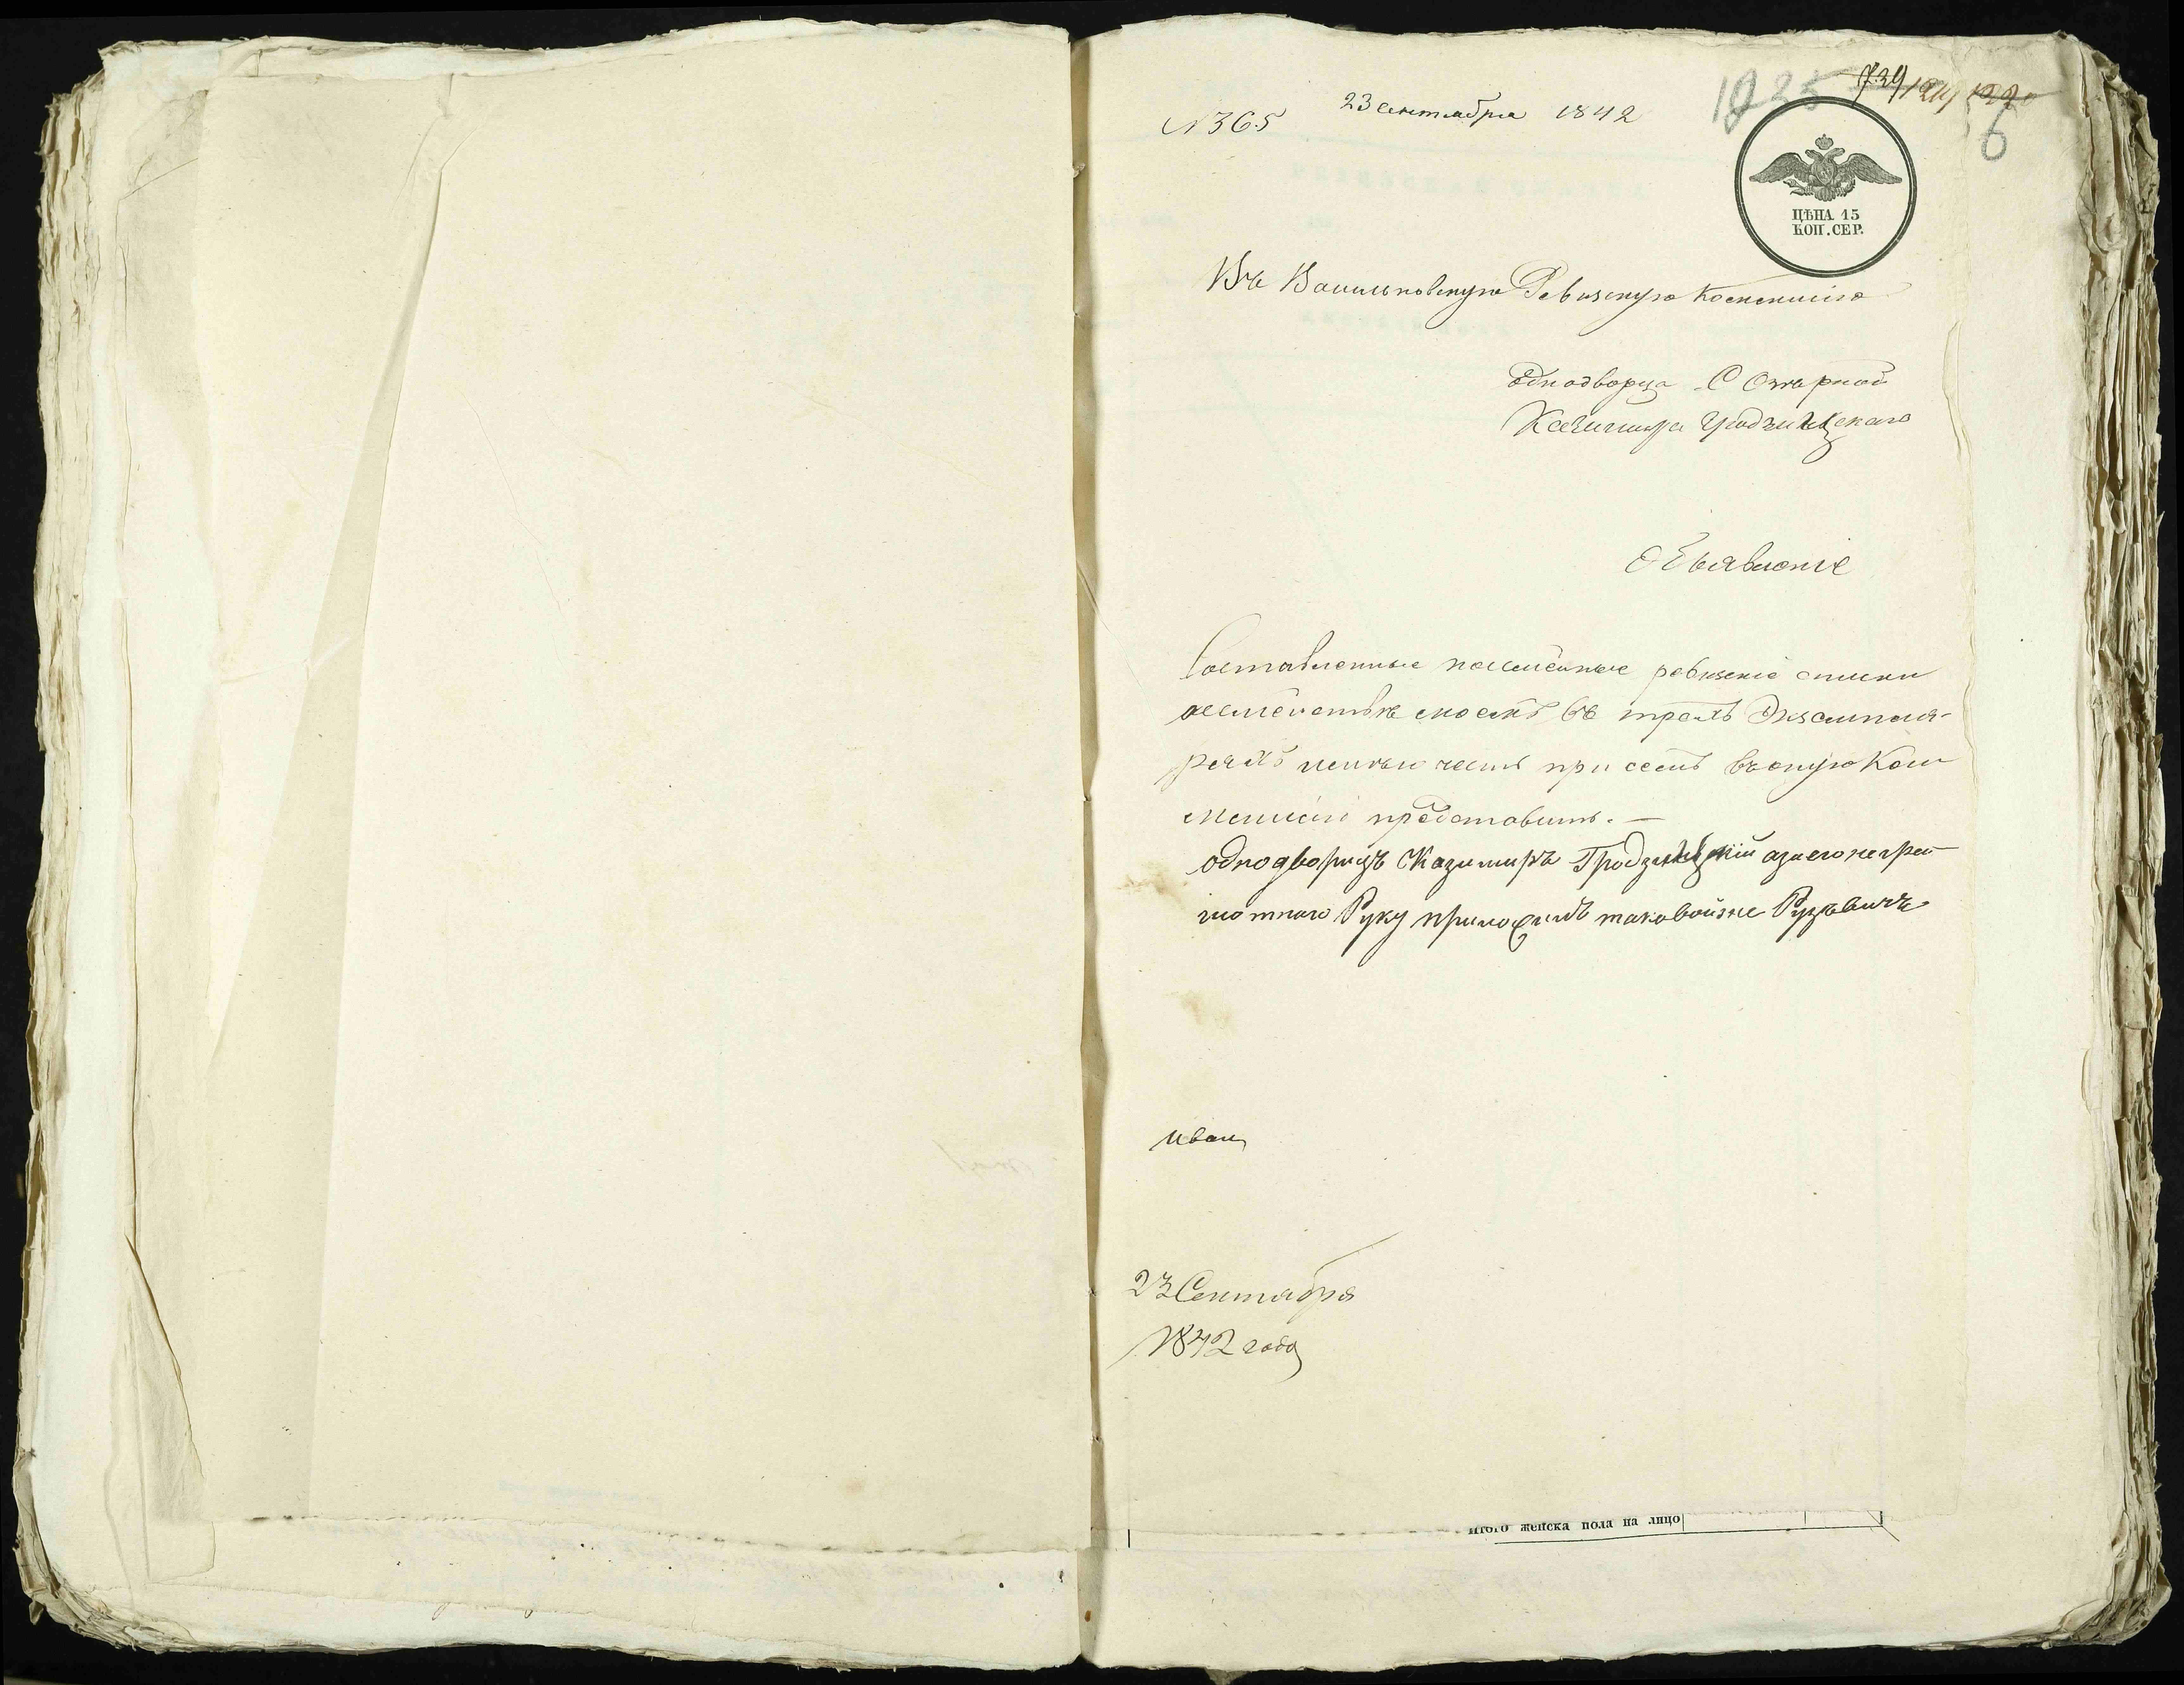 1225 729 1211 1220
6
N365 23 Сентября 1842
ЦѢНА 15
КОП. СЕР.
Въ Васильковскую Ревизскую Коммисію
Однодворца С Озѣрной
Казимира Гродзицкаго
Объявленіе
Составленные посемейные ревизскіе списки
о семействѣ моемъ въ трехъ Экземпля-
рахъ имѣю честь при семъ въ оную Ком
мисію представить. —
однодворецъ Казимиръ Гродзицкій азаего неграм
мотнаго Руку приложилъ таковойже Рузѣвичъ
Иван
23 Сентября
1842 года
Итого женска пола на лицо